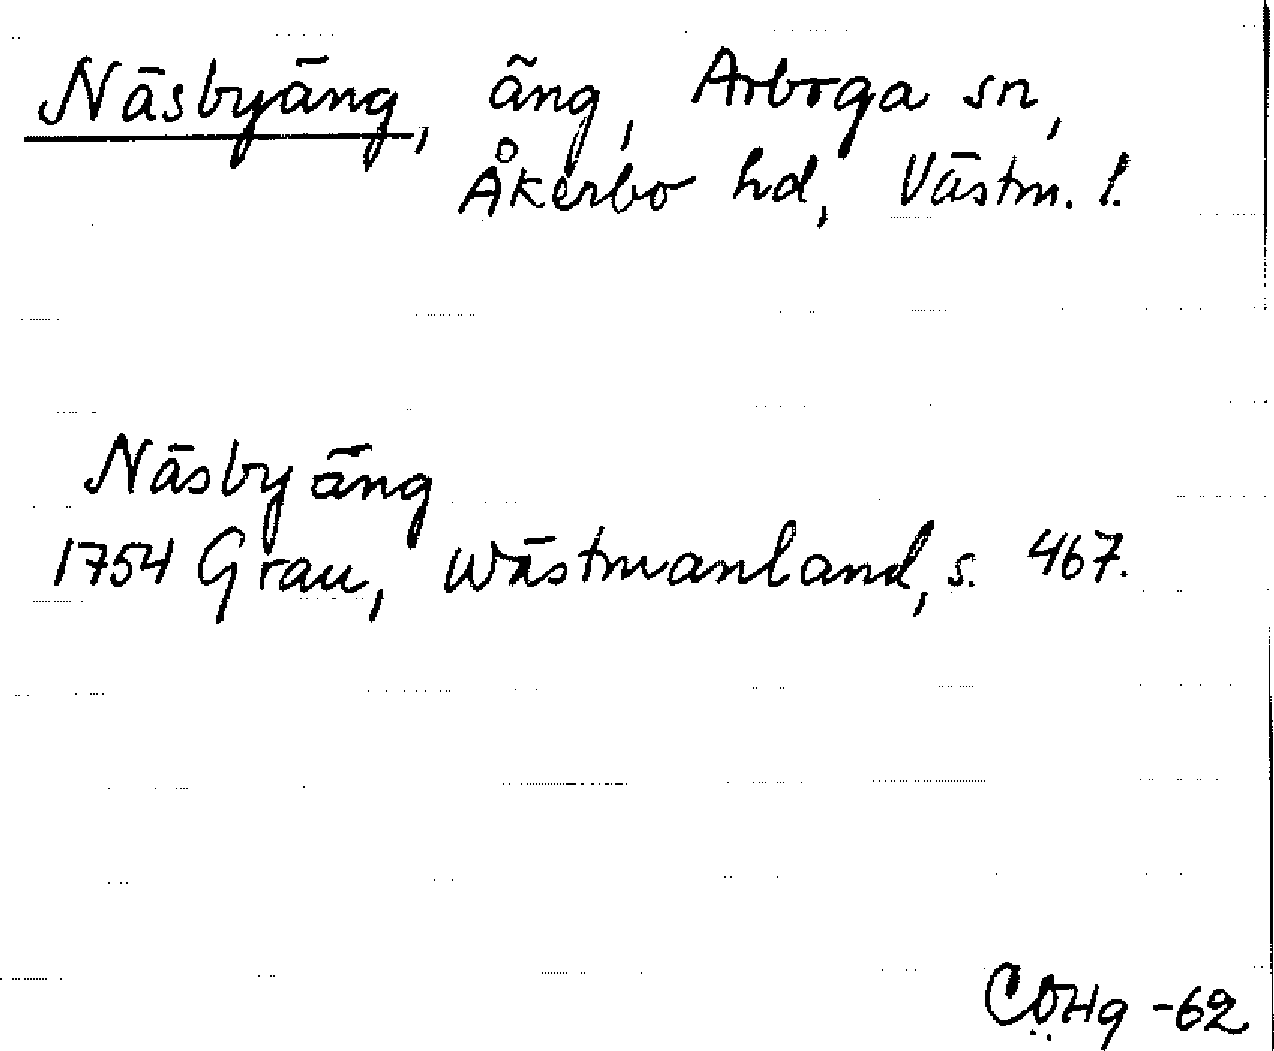 Näsbyäng, äng, Arboga sn,
Åkerbo hd, Västm. l.
Näsby äng
1754 Grau, Wästmanland, s. 467.
CÖHg -62